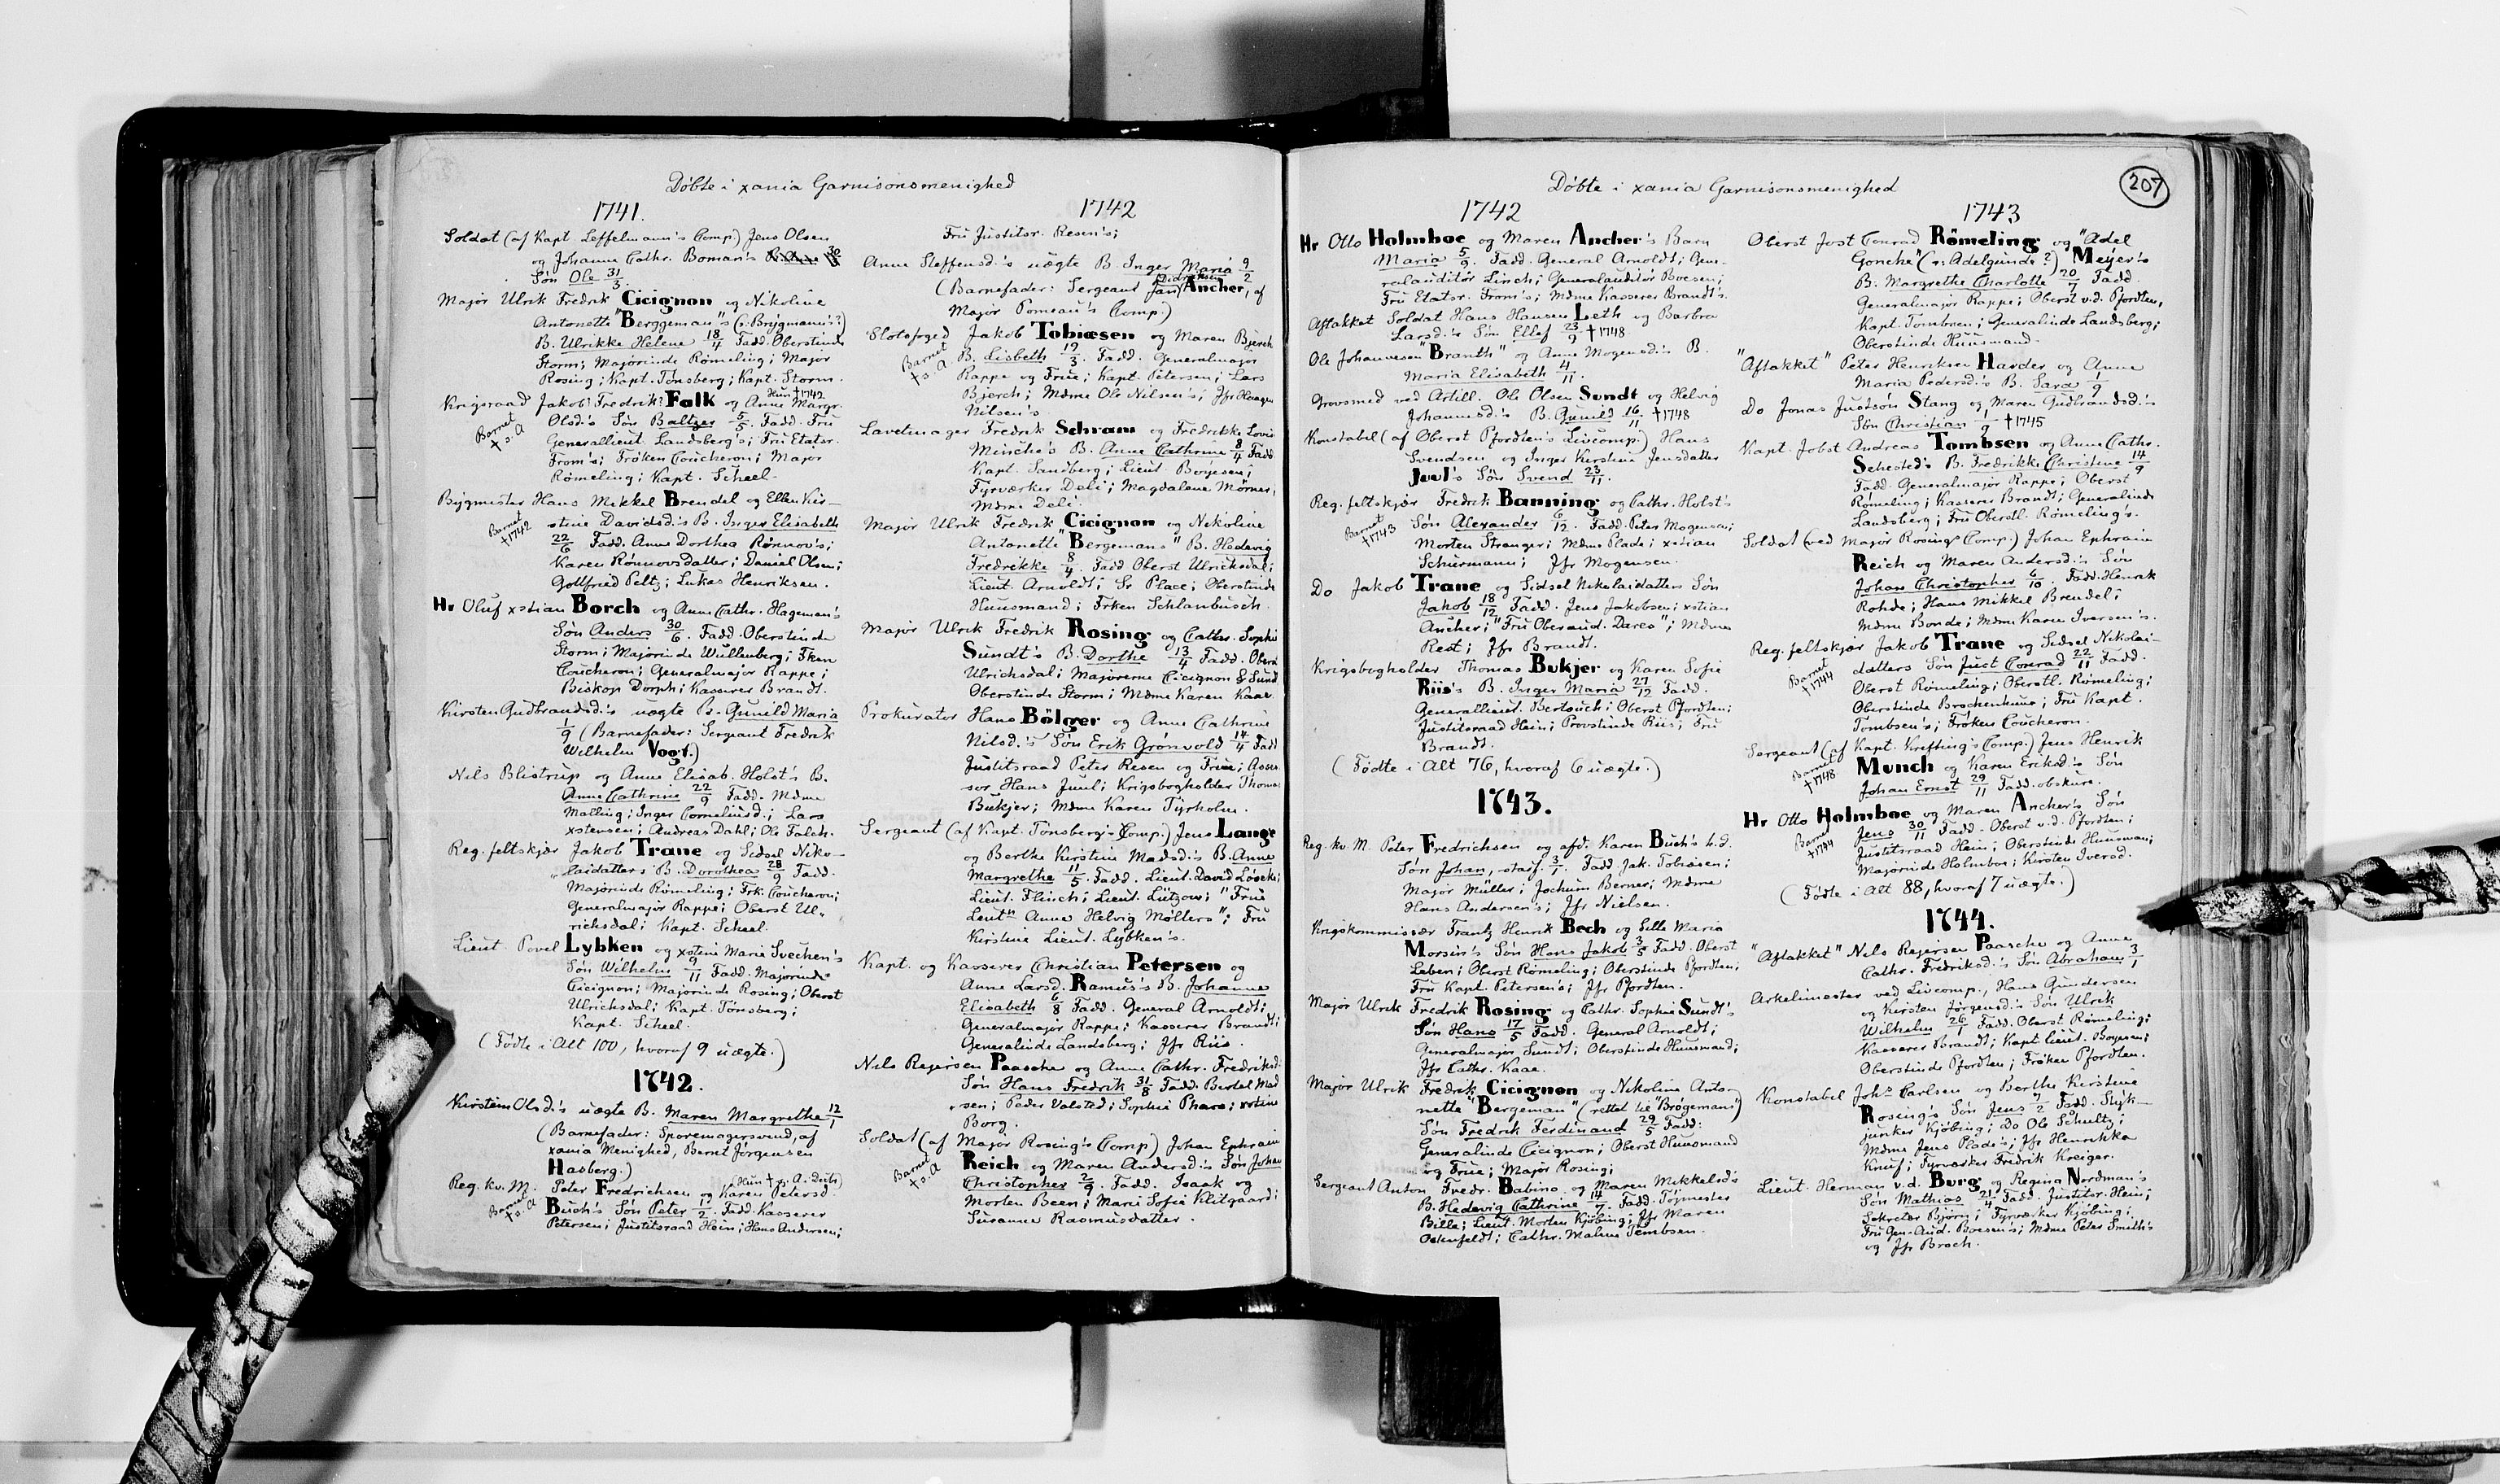 Döbte i xania Garnisonsmenighed
1741.
Soldat (af Kapt Leffelmann's Comp.) Jens Olsen
og Johanne Cathr. Boman's
Søn Ole 31/3.
Major Ulrik Fredrik Cicignon og Nikoline
Antonette "Berggeman"s (ɔ: Brygmann's?)
B. Ulrikke Helene 18/4 Fadd. Oberstinde
Storm; Majorinde Rømeling; Major
Rosing; Kapt. Tønsberg; Kapt. Storm.
Krigsraad Jakob? Fredrik? Falk og Anne Margr.
Hun † 1742
Barnet † s. A
Olsd.'s Søn Baltzer 5/5. Fadd. Fru
Generallieut. Landsberg's; Fru Etatsr.
From's; Frøken Coucheron; Major
Rømeling; Kapt. Scheel.
Bygmester Hans Mikkel Brendel og Ellen Kir-
Barnet † 1742
stine Davidsd.'s B. Inger Elisabeth
22/6 Fadd. Anne Dorthea Rønnov's;
Karen Rønnovsdatter; Daniel Olsen;
Gottfried Peltz; Lukas Henriksen.
Hr Oluf xstian Borch og Anne Cathr. Hageman's
Søn Anders 30/6. Fadd. Oberstinde
Storm; Majorinde Wullenberg; Fken
Coucheron; Generalmajor Rappe;
Biskop Dorph; Kasserer Brandt.
Kirsten Gudbrandsd.'s uægte B. Gunild Maria
1/9 (Barnefader: Sergeant Fredrik
Wilhelm Vogt.)
Nils Blistrup og Anne Elisab. Holst's B.
Anne Cathrine 22/9 Fadd. Mdme
Malling; Inger Corneliusd.; Lars
xstensen; Andreas Dahl; Ole Falch.
Reg. feltskjær Jakob Trane og Sidsel Niko-
laidatter's B. Dorothea 28/9 Fadd.
Majorinde Rømeling; Frk. Coucheron;
Generalmajor Rappe; Oberst Ul-
richsdal; Kapt. Scheel.
Lieut. Povel Lybken og xstine Marie Svechen's
Søn Wilhelm 9/11 Fadd. Majorinde
Cicignon; Majorinde Rosing; Oberst
Ulrichsdal; Kapt. Tønsberg;
Kapt. Scheel.
(Fødte i Alt 100, hvoraf 9 uægte.)
1742.
Kirsten Olsd.'s uægte B. Maren Margrethe 12/1
(Barnefader: Sporemagersvend, af
xania Menighed, Bernt Jørgensen
Hasberg.)
Reg. kv. M. Peter Fredrichsen og Karen Petersd.
Barnet † s. A
Buch's Søn Peter 17/2. Fadd. Kasserer
Petersen; Justitsraad Hein; Hans Andersen;
1742
Fru Justitsr. Resen's;
Anne Steffensd.'s uægte B. Inger Maria 9/2
(Barnefader: Sergeant Ancher, af
Major Pomeau's Comp.)
Slotsfoged Jakob Tobiæsen og Maren Bjerch
Barnet † s. A
B. Lisbeth 19/3. Fadd. Generalmajor
Rappe og Frue; Kapt. Petersen; Lars
Bjerch; Mdme Ole Nilsen's; Jfr Haagen
Nilsen's
Lavetmager Fredrik Schram og Fredrikke Lovis
Minche's B. Anne Cathrine 8/4 Fadd
Kapt. Sandberg; Lieut. Borgesen;
Fyrværker Deli; Magdalene Mörner;
Mdme Deli.
Major Ulrik Fredrik Cicignon og Nikoline
Antonette "Bergemans" B. Hedevig
Fredrikke 8/4. Fadd Oberst Ulrichsdal;
Lieut. Arnoldt; Sr Place; Oberstinde
Huusmand; Frken Schlanbusch.
Major Ulrik Fredrik Rosing og Cathr. Sophie
Sundt's B. Dorthe 13/4 Fadd. Oberst
Ulrichsdal; Majorerne Cicignon & Sund
Oberstinde Storm; Mdme Karen Kaae
Prokurator Hans Bölger og Anne Cathrine
Nilsd.'s Søn Erik Grønvold 14/4 Fadd
Justitsraad Peter Resen og Frue; Asses
sor Hans Juul; Krigsbogholder Thomas
Bukjer; Mdme Karen Tyrholm.
Sergeant (af Kapt. Tønsberg's Comp.) Jens Lange
og Berthe Kirstine Madsd.'s B. Anne
Margrethe 11/5. Fadd. Lieut. David Löseke;
Lieut. Flinch; Lieut. Lützow; "Frue
Leut" Anne Helvig Møllers"; Fru
Kirstine Lieut. Lybken's.
Kapt. og Kasserer Christian Petersen og
Anne Larsd. Ramus's B. Johanne
Elisabeth 6/8 Fadd. General Arnoldt;
Generalmajor Rappe; Kasserer Brandt;
Generalinde Landsberg; Jfr Riis.
Nils Rejersen Paasche og Anne Cathr. Fredriksd.
Søn Hans Fredrik 31/8 Fadd. Bertel Mad
sen; Peder Valsted; Sophie Pharo; xstine
Borg.
Soldat (af Major Rosing's Comp) Johan Ephraim
Barnet † s. A
Reich og Maren Andersd.'s Søn Johan
Christopher 2/9. Fadd. Isaak og
Morten Been; Marie Sofie Klitgaard;
Susanne Rasmusdatter.
Döbte i xania Garnisonsmenighed
207
1742
Hr Otto Holmboe og Maren Ancher's Barn
Maria 5/9. Fadd. General Arnoldt; Gene-
ralauditør Linch; Generalauditør Boesen;
Fru Etatsr. From's; Mdme Kasserer Brandt's.
Aftakket Soldat Hans Hansen Leth og Barbra
Larsd.'s Søn Ellef 23/9 † 1748
Ole Johannesen "Branth" og Anne Mogensd.'s B.
Maria Elisabeth 4/11.
Grovsmed ved Artill. Ole Olsen Sundt og Helvig
Johannesd.'s B. Gunild 16/11 † 1748
Konstabel (af Oberst Pfordten's Livcomp.) Hans
Svendsen og Inger Kirstine Jensdatter
Juel's Søn Svend 23/11.
Reg. feltskjær Fredrik Banning og Cathr. Holst's
Barnet † 1743
Søn Alexander 6/12. Fadd. Peter Mogensen;
Morten Stranger; Mdme Plade; xstian
Schiermann; Jfr Mogensen.
Do Jakob Trane og Sidsel Nikolaidatters Søn
Jakob 18/12 Fadd. Jens Jakobsen; xstian
Ancher; "Fru Oberaud. Dares"; Mdme
Rest; Jfr Brandt.
Krigsbogholder Thomas Bukjer og Karen Sofie
Riis's B. Inger Maria 27/12 Fadd.
Generallieut. Bertouch; Oberst Pfordten;
Justitsraad Hein; Provstinde Riis; Fru
Brandt.
(Fødte i Alt 76, hvoraf 6 uægte.)
1743.
Reg. kv. M. Peter Fredrichsen og afd. Karen Buch's
Søn Johan, 3/1. Fadd. Jak. Tobiæsen;
Major Müller; Jochum Berner; Mdme
Hans Andersen's; Jfr Nielsen.
Krigskommissær Frantz Henrik Bech og Sille Maria
Morsin's Søn Hans Jakob 3/5 Fadd. Oberst
Leben; Oberst Rømeling; Oberstinde Pfordten;
Fru Kapt. Petersen's; Jfr Pfordten.
Major Ulrik Fredrik Rosing og Cathr. Sophie Sundt's
Søn Hans 17/5 Fadd. General Arnoldt;
Generalmajor Sundt; Oberstinde Huusmand;
Jfr Cathr. Kaae.
Major Ulrik Fredrik Cicignon og Nikoline Anto-
nette "Bergeman" (rettet til "Brögemans")
Søn Fredrik Ferdinand 29/5 Fadd:
Generalinde Cicignon; Oberst Huusmand
og Frue; Major Rosing;
Sergeant Anton Fredr. Babino og Maren Mikkelsd's
B. Hedevig Cathrine 14/7. Fadd. Tøjmester
Bille; Lieut. Morten Kjöbing; Jfr Maren
Ostenfeldt; Cathr. Malene Tembsen.
1743
Oberst Jost Conrad Römeling og "Adel
Gonche" (ɔ: Adelgunde?) Meyer's
B. Margrethe Charlotte 20/7 Fadd.
Generalmajor Rappe; Oberst v.d. Pfordten;
Kapt. Tombsen; Generalinde Landsberg;
Oberstinde Huusmand.
"Aftakket" Peter Henriksen Harder og Anne
Maria Pedersd.'s B. Sara 1/9
Do Jonas Justsøn Stang og Maren Gudbrandsd.'s
Søn Christian 1/9 † 1745
Kapt. Jobst Andreas Tombsen og Anne Cathr.
Sehested's B. Fredrikke Christine 14/9
Fadd. Generalmajor Rappe; Oberst
Rømeling; Kasserer Brandt; Generalinde
Landsberg; Fru Oberstl. Rømeling's.
Soldat (ved Major Rosings Comp.) Johan Ephraim
Reich og Maren Andersd.'s Søn
Johan Christopher 6/10. Fadd. Henrik
Rohde; Hans Mikkel Brendel;
Mdme Bonde; Mdme Karen Iversen's.
Reg. feltskjær Jakob Trane og Sidsel Nikolai-
Barnet † 1744
datters Søn Just Conrad 22/11 Fadd.
Oberst Rømeling; Oberstl. Rømeling;
Oberstinde Brochenhuus; Fru Kapt.
Tombsen's; Frøken Coucheron.
Sergeant (af Kapt. Krefting's Comp.) Jens Henrik
Barnet † 1748
Munch og Karen Eriksd.'s Søn
Johan Ernst 29/11 Fadd. obskure.
Hr Otto Holmboe og Maren Ancher's Søn
Barnet † 1744
Jens 30/11 Fadd. Oberst v.d. Pfordten;
Justitsraad Hein; Oberstinde Huusman;
Majorinde Holmboe; Kirsten Iversd.
(Fødte i Alt 88, hvoraf 7 uægte.)
1744.
"Aftakket" Nils Rejersen Paasche og Anne
Cathr. Fredriksd.'s Søn Abraham 3/1
Arkelimester ved Livcomp., Hans Gundersen
og Kirsten Jørgensd.'s Søn Ulrik
Wilhelm 26/1 Fadd. Oberst Rømeling;
Kasserer Brandt; Kapt lieut. Borgesen;
Oberstinde Pfordten; Frøken Pfordten.
Konstabel Johs Carlsen og Berthe Kirstine
Rosing's Søn Jens 7/2 Fadd. Styk-
junker Kjöbing; Do Ole Schultz;
Mdme Jens Plade's; Jfr Henrikka
Knuf; Fyrværker Fredrik Kreiger.
Lieut. Herman v.d. Burg og Regina Nordman's
Søn Mathias 21/4 Fadd. Justitsr. Hein;
Sekretær Bjørn; Fyrværker Kjöbing;
Fru Gen-Aud. Boesen's; Mdme Peter Smith's
og Jfr Broch.